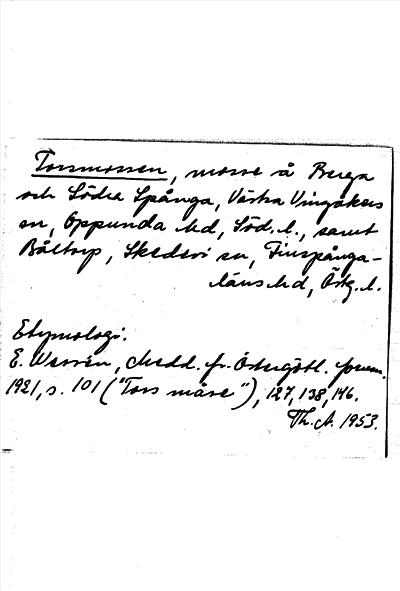 Torsmossen, mosse å Berga
och Södra Spånga, Västra Vingåkers
sn, Oppunda hd, Söd. l., samt
Båltorp, Skedevi sn, Finspånga-
läns hd, Östg. l.
Etymologi:
E. Wessén, Medd. fr. Östergötl. fornm.
1921, s. 101 ("Tors måse"), 127, 138, 146.
Th. A. 1953.